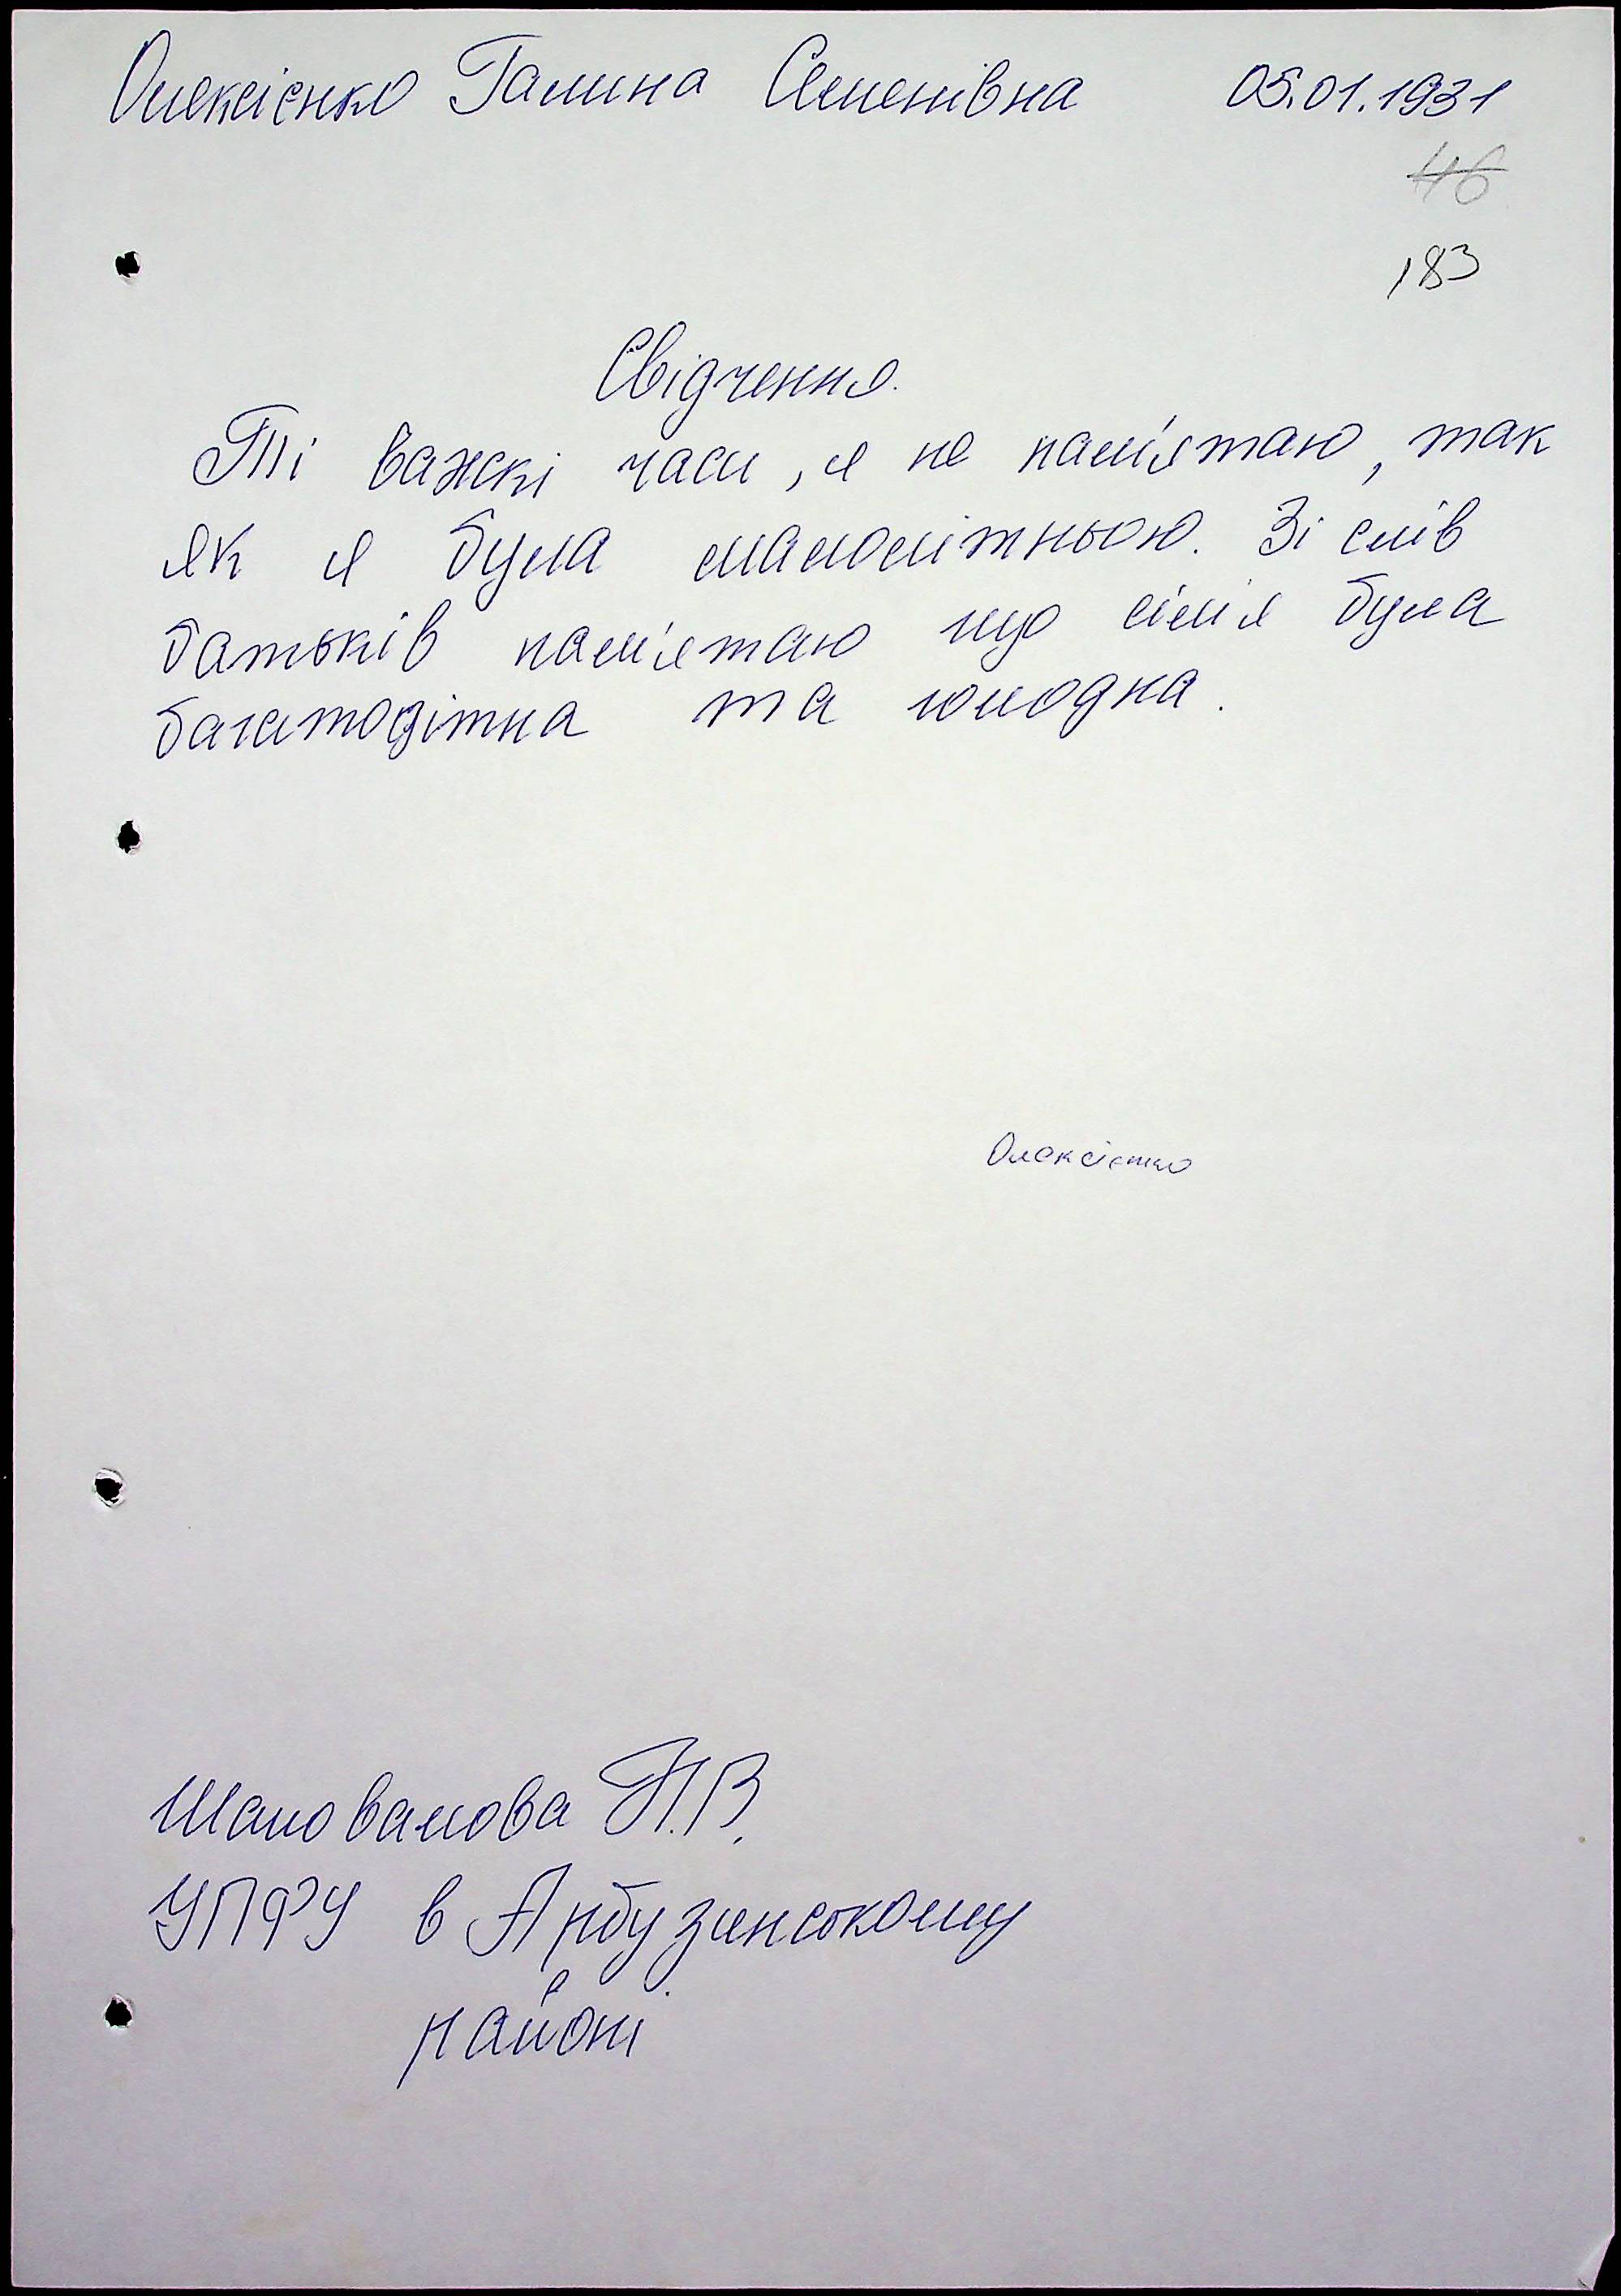 Олексієнко Галина Семенівна 05.01.1931
46
183
Свідчення.
Ті важкі часи, я не пам'ятаю, так
як я була малолітньою. Зі слів
батьків пам'ятаю що сім'я була
багатодітна та голодна.
Олексієнко
Шаповалова Н.В.
УПФУ в Арбузинському
районі